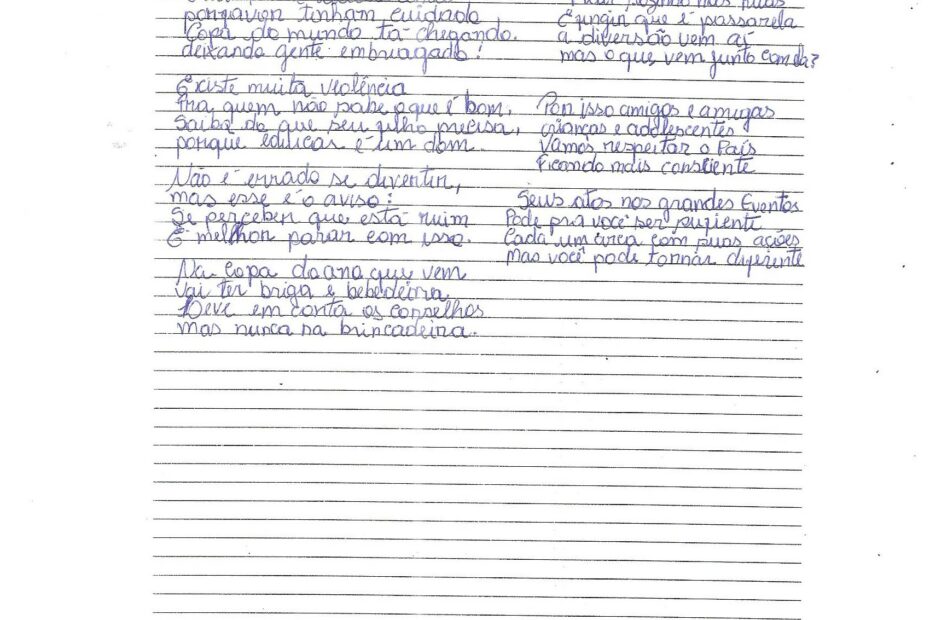 porfavor tinham cuidado,
Copa do mundo tá chegando.
deixando gente embriagado!
Existe muita violência
Pra quem não sabe o que é bom.
Saiba do que seu filho precisa,
porque edificar é um dom.
Não é errado se divertir,
mas esse é o aviso:
Se perceber que está ruim
É melhor parar com isso.
Na Copa do ano que vem
vai ter briga e bebedeira
Leve em conta os conselhos
mas nunca na brincadeira.
E fingir que é passarela
a diversão vem aí
mas o que vem junto com ela?
Por isso amigos e amigas
crianças e adolescentes
Vamos respeitar o País
Ficando mais consciente
Seus atos nos grandes Eventos
Pode pra você ser
Cada um com suas ações
Mas você pode tornar diferente